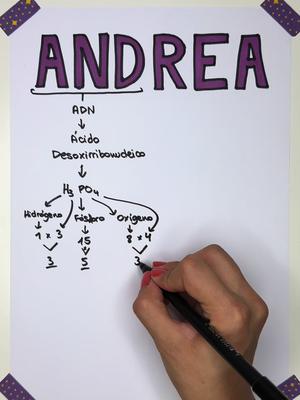 ANDREA
ADN
Ácido
Desoxirribonucleico
H₃ PO₄
Hidrógeno Fósforo Oxígeno
1 x 3 15 8 x 4
3 5 3